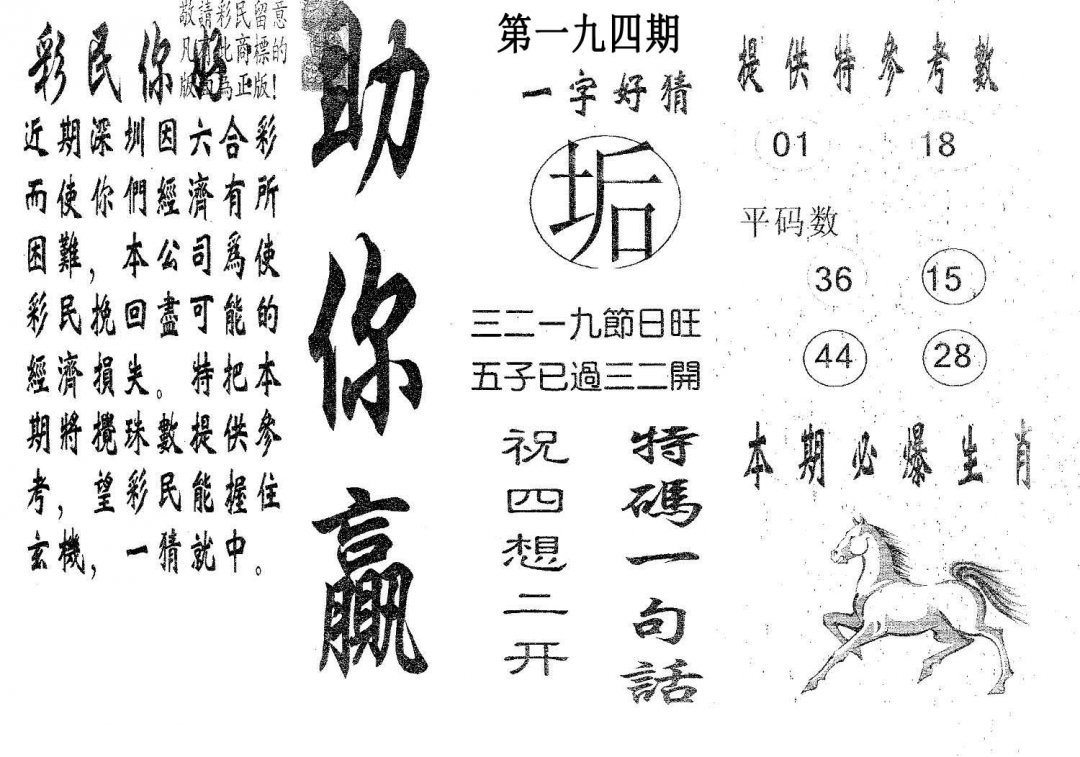 敬請彩民留意
凡有此商標的
版面為正版!
彩民你好
近期深圳因六合彩
而使你們經濟有所
困難，本公司爲使
彩民挽回盡可能的
經濟損失。特把本
期將攪珠數提供參
考，望彩民能握住
玄機，一猜就中。
助你贏
第一九四期
一字好猜
垢
三二一九節日旺
五子已過三二開
特碼一句話
祝四想二开
提供特參考數
01 18
平码数
36 15
44 28
本期必爆生肖